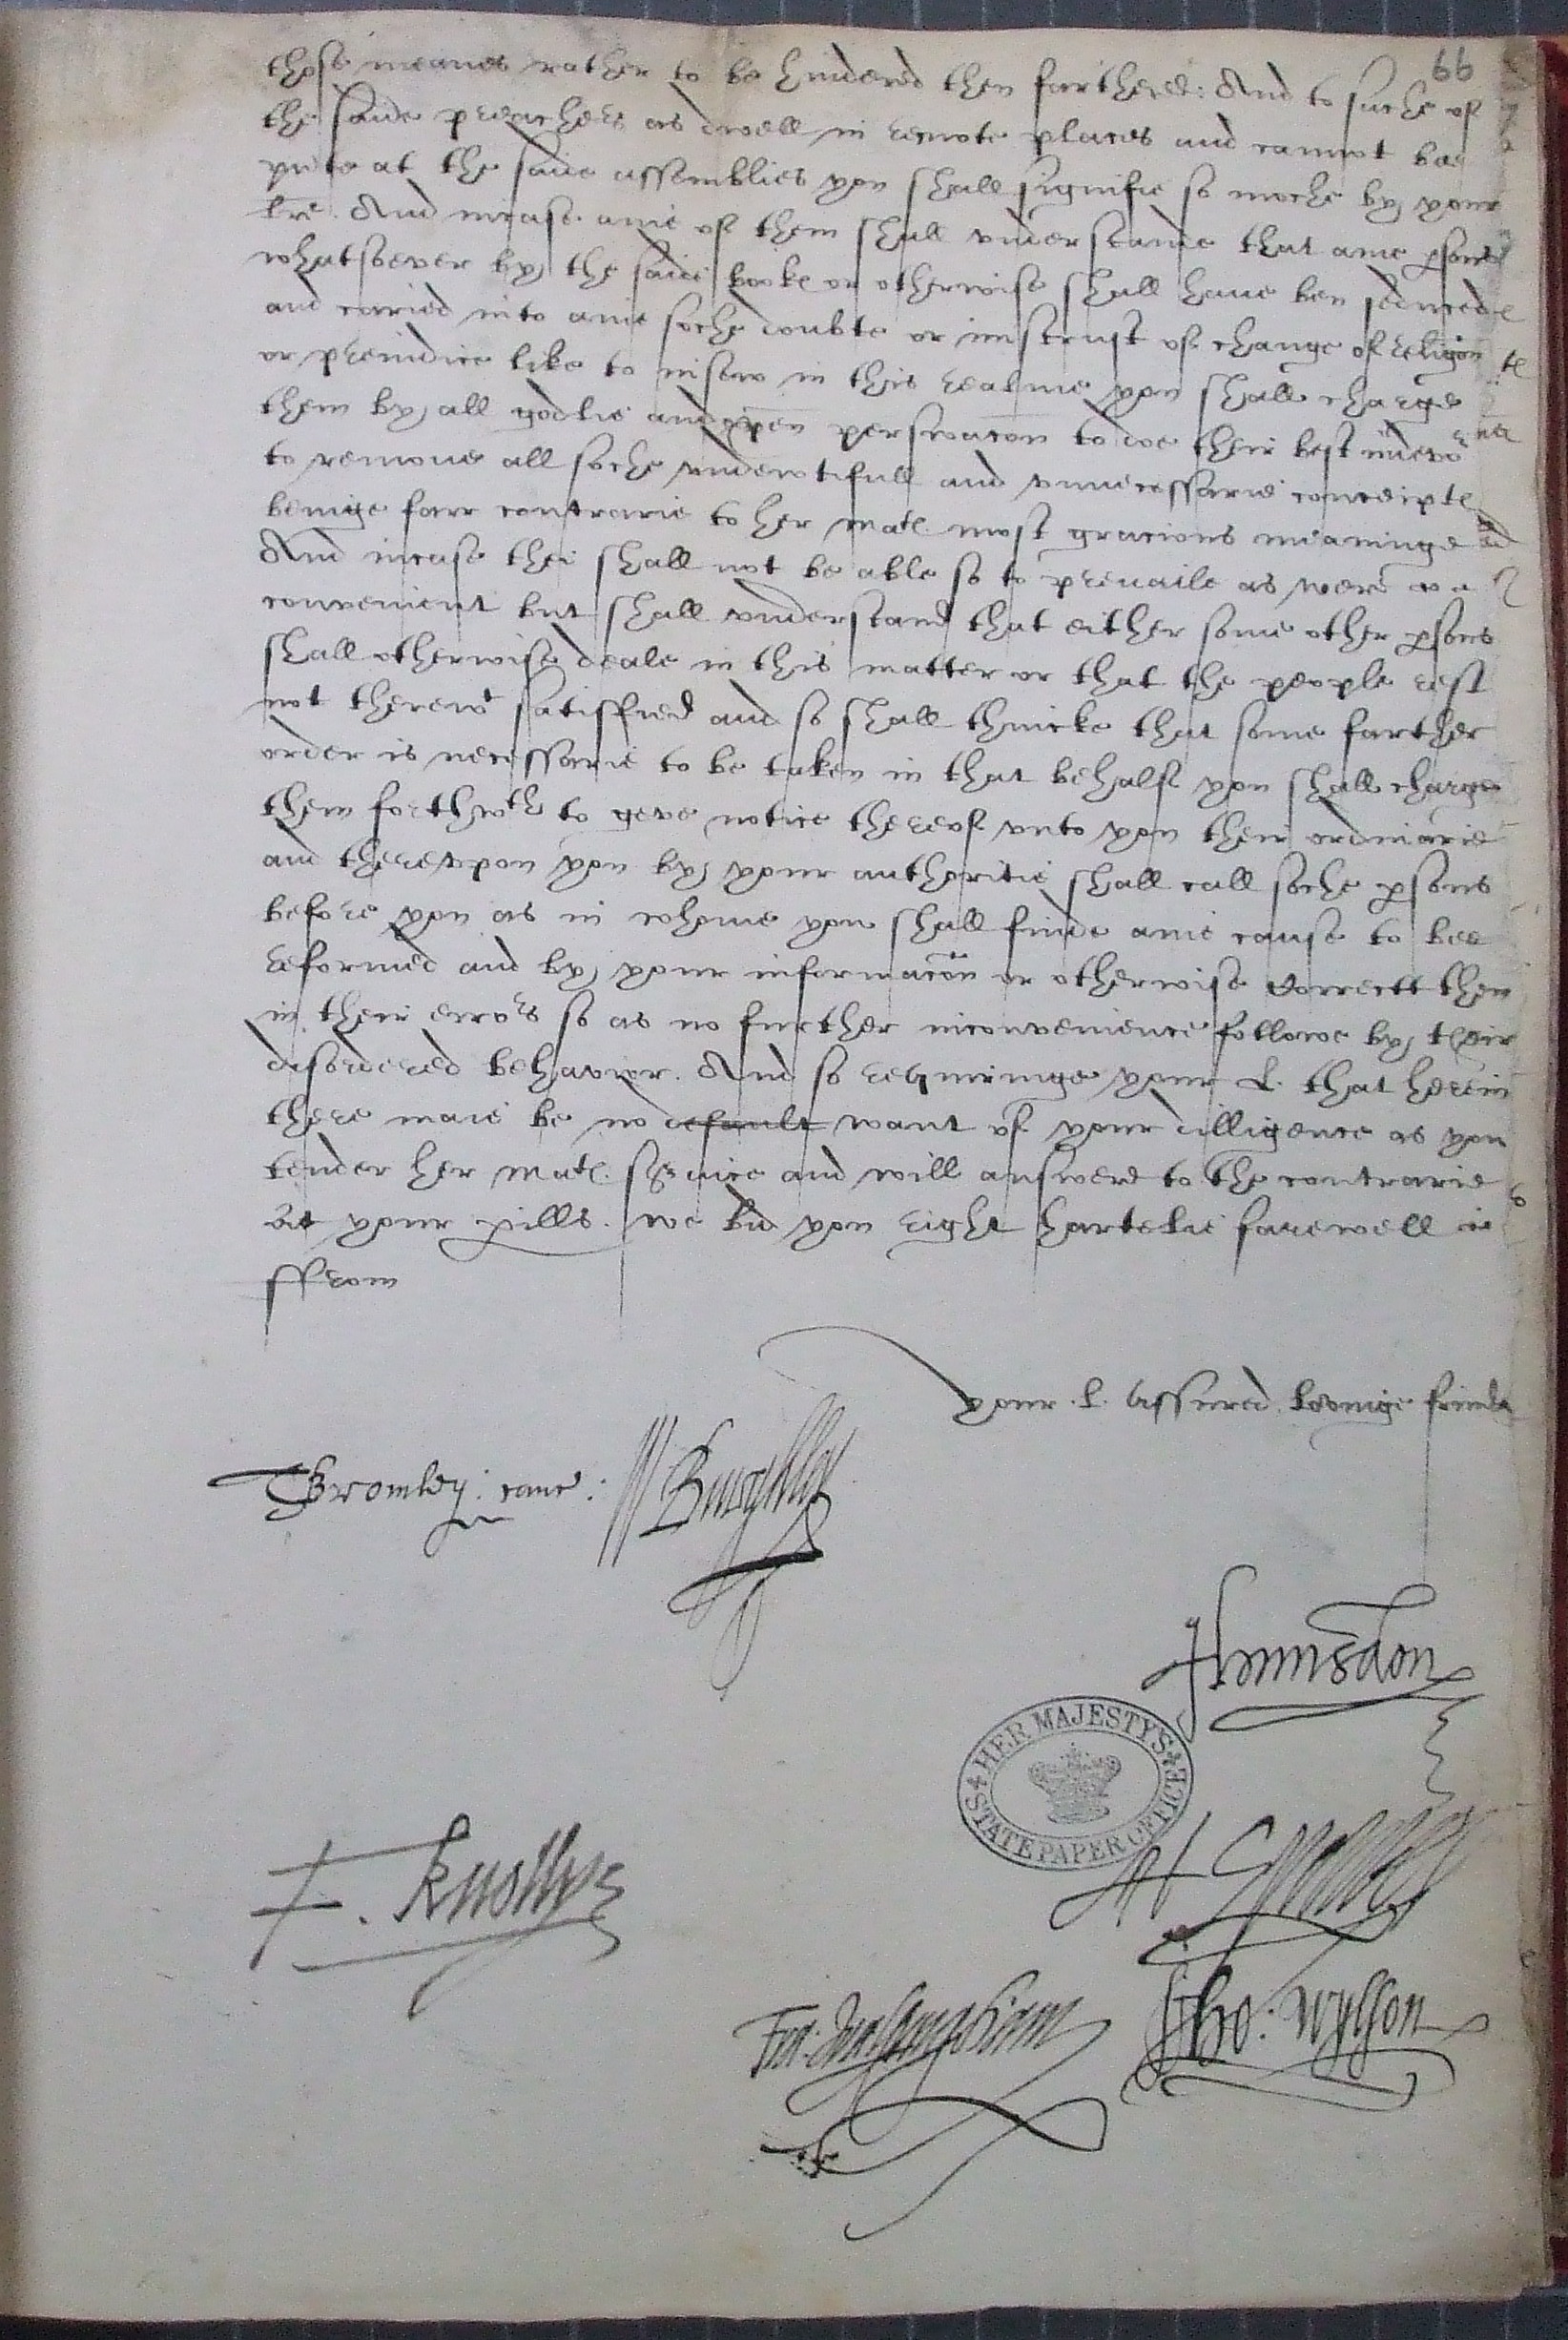 66
those meanes rather to be hindered then furthered: And to suche of
the saide preachers as dwell in remote places and cannot bee
pnte at the saide assemblies you shall signifie so moche by your
lre. And incase anie of them shall understande that anie psons
whatsoever by the saide booke or otherwise shall have ben seduced
and caried into anie soche doubte or mistrust of change of religion
or preiudice like to insew in this realme you shall charge
them by all godlie and open perswacon to doe their best indevor
to remove all soche undewtifull and unnecessarie conceipte
beinge farr contrarie to her mate. most gracious meaninge
And incase thei shall not be able so to prevaile as were
convenient but shall understand that either some other psons
shall otherwise deale in this matter or that the people rest
not therewt satisffied and so shall thincke that some farther
order is necessarie to be taken in that behalf you shall charge
them forthwth to geve notice thereof unto you their ordinarie
and thereupon you by your authoritie shall call soche psons
before you as in whome you shall finde anie cause to bee
reformed and by your informacon or otherwise correctt them
in their errors so as no further inconvenience followe by their
disordered behavior. And so requiringe your L. that herein
there maie be no default want of your dilligence as you
tender her mate. service and will answere to the contrarie
at your pills. we bid you right hartelie farewell
ffrom
your. L. assured lovinge frinds
T Bromley: canc: W Burghley
Hunsdon
HER MAJESTY'S STATE PAPER OFFICE
F. Knollys
Fra: Walsyngham Tho: Wylson